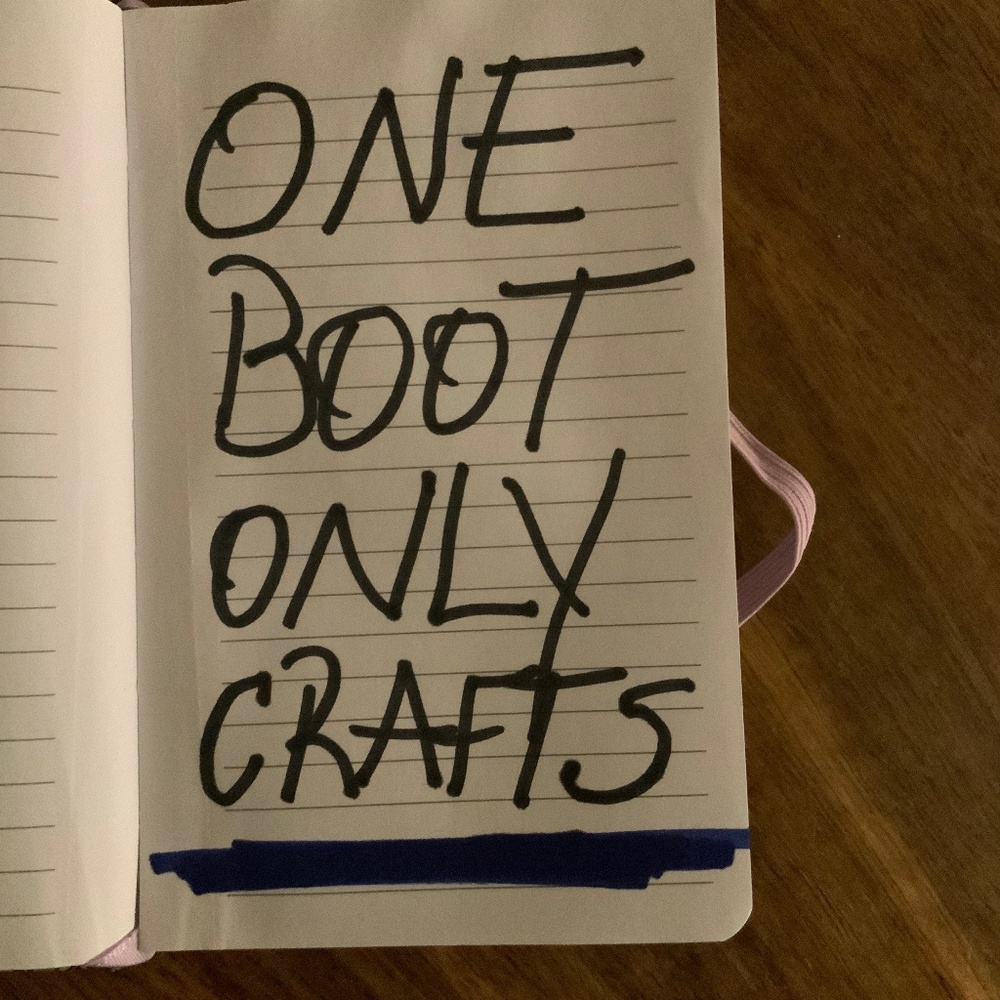 ONE
BOOT
ONLY
CRAFTS